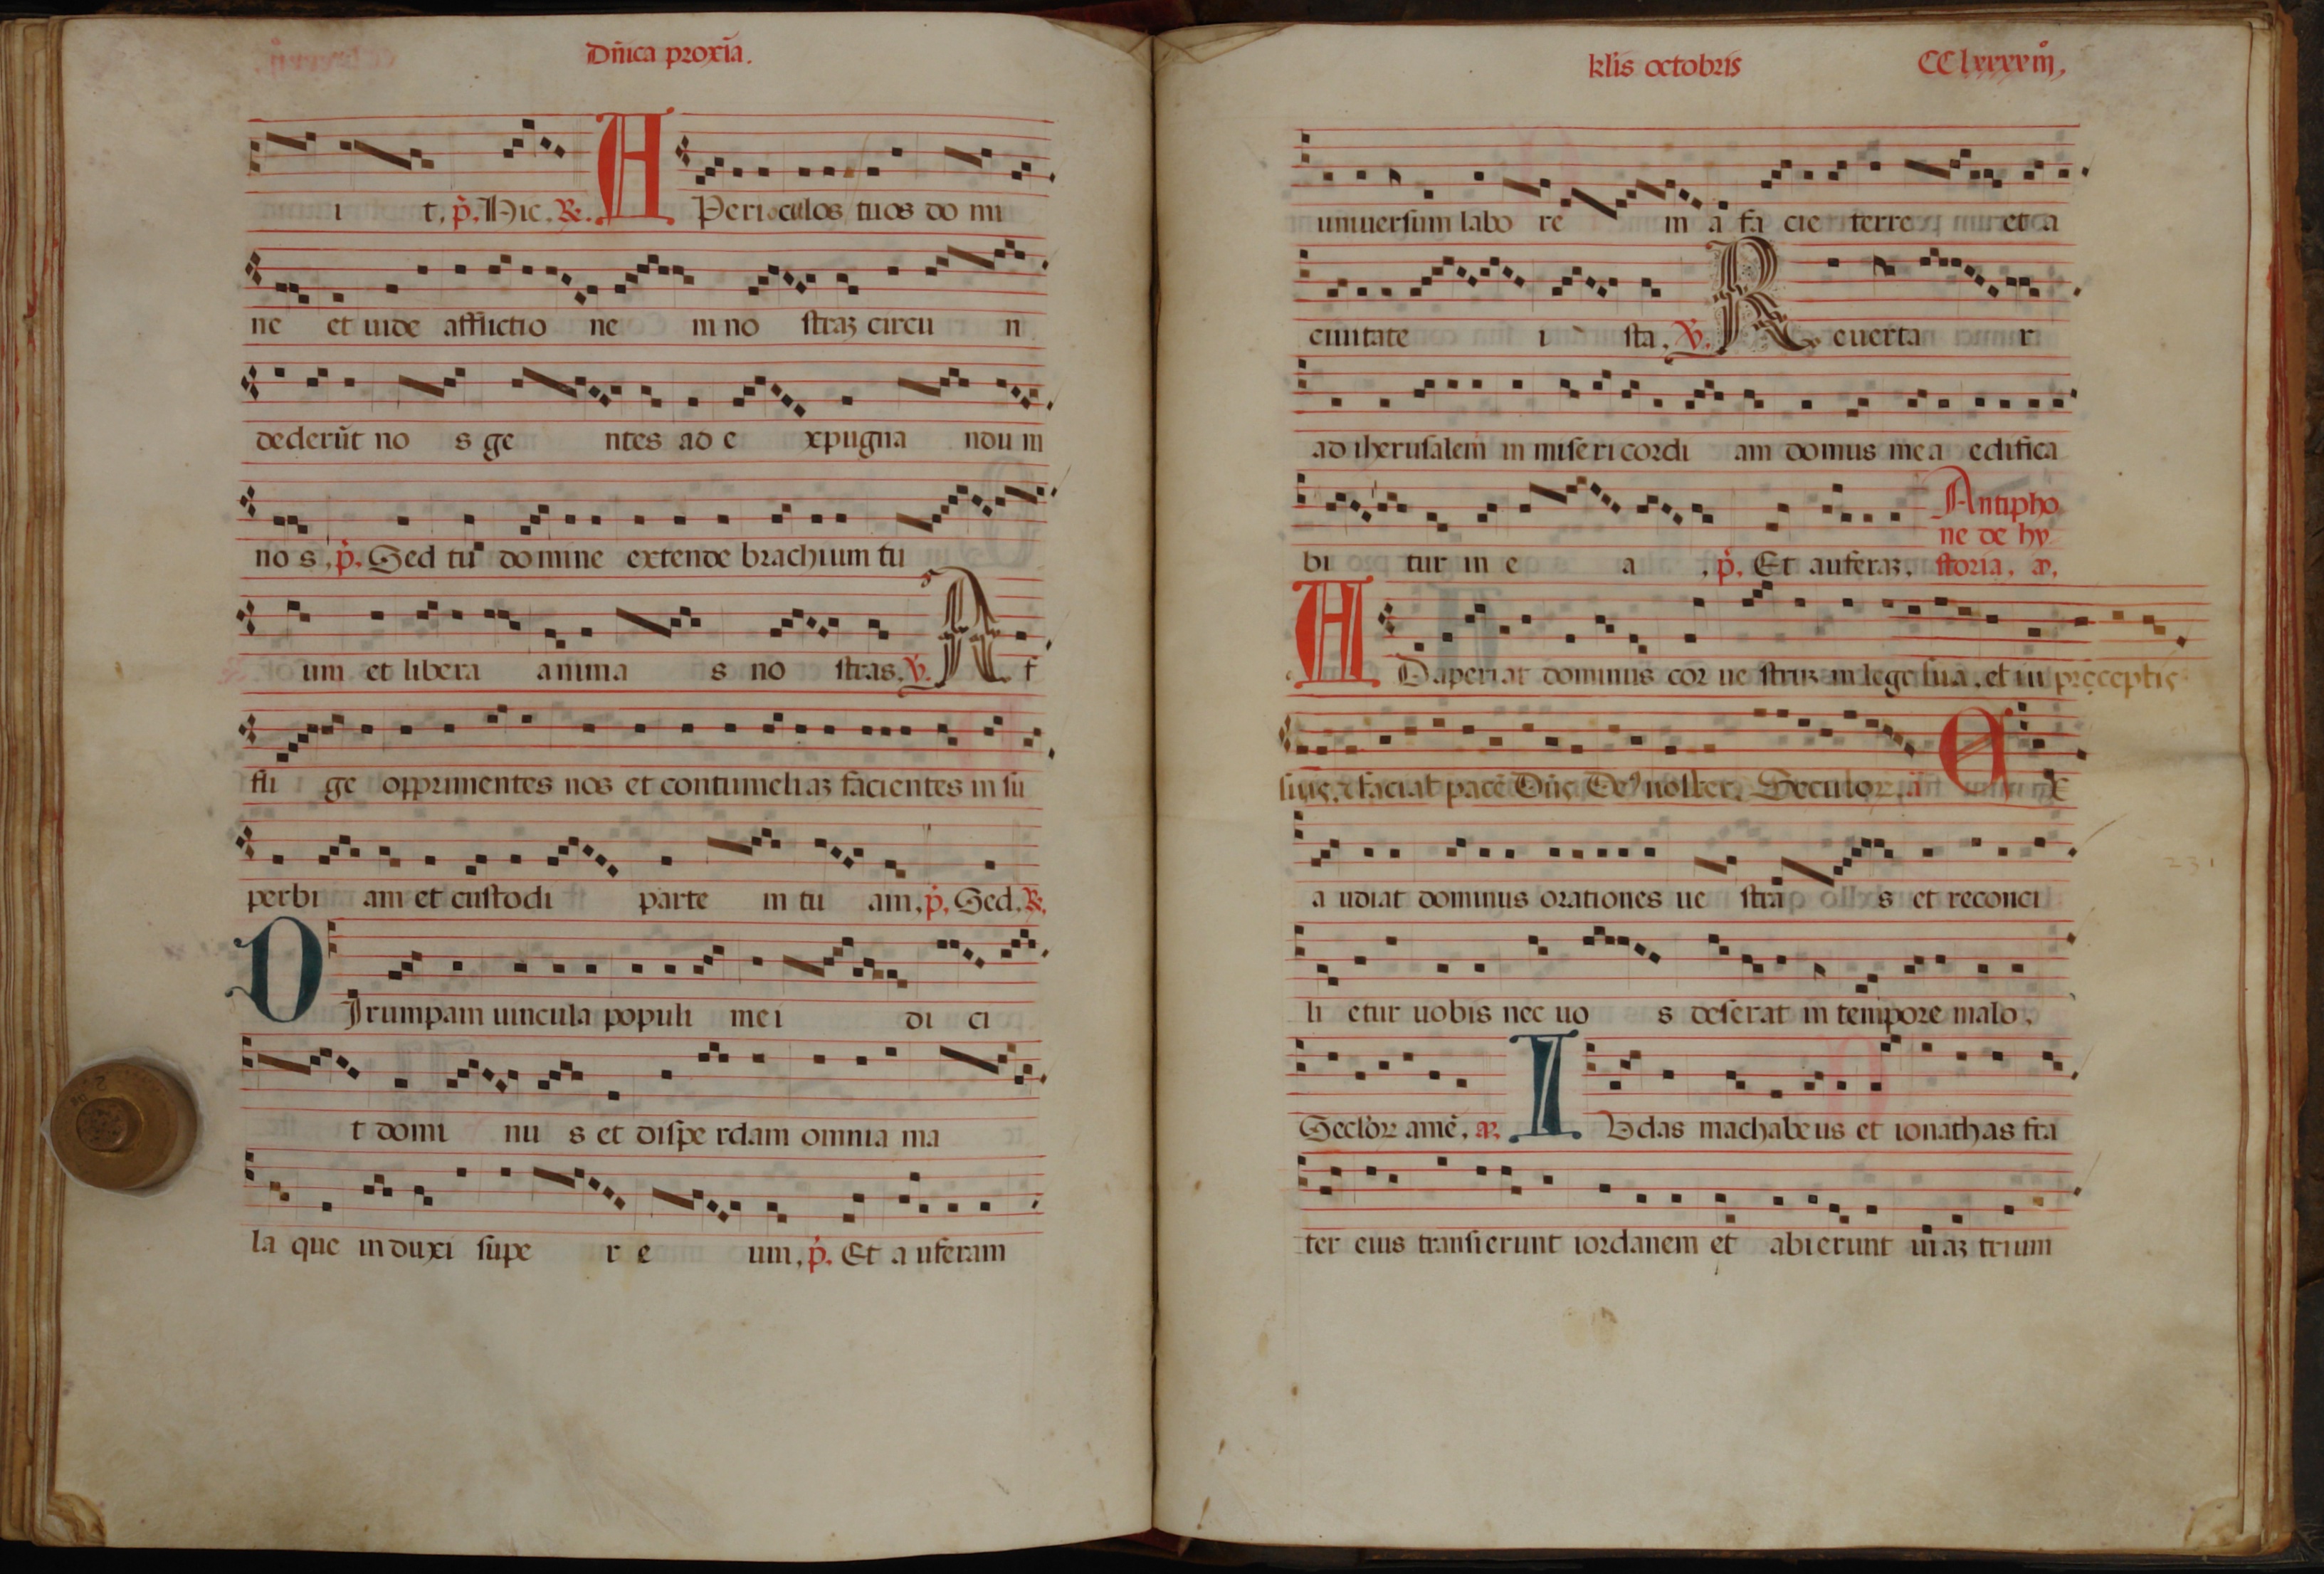 Dn̄ica proxīa.
i t. p̄. Hic. ℟. APerioculos tuos do mi
ne et uide afflictio ne m no straꝫ circu n
dederūt no s ge ntes ad e xpugna ndu m
no s. p̄. Sed tu domine extende brachium tu
um et libera anima s no stras. ℣. A f
fli ge opprimentes nos et contumeliaꝫ facientes in su
perbi am et custodi parte m tu am. p̄. Sed. ℟.
DIrumpam uincula populi mei di ci
t domi nu s et dispe rdam omnia ma
la que induxi supe r e um. p̄. Et a uferam
klis octobris CClxxxxiij.
uniuersum labo re m a fa cie terre et a
ciuitate i sta. ℣. Reuerta r
ad iherusalem in misericordi am domus mea edifica
bi tur in e a . p̄. Et auferaꝫ. Antipho
ne de hy
storia. a.
ADaperiat dominus cor ue strūꝫ in lege sua. et in preceptis
suis. et faciat pacē Dn̄s De⁹ noster. Seculoꝝ. a Ex
a udiat dominus orationes ue stra s et reconci
li etur uobis nec uo s deserat in tempore malo.
Secloꝝ amē. a. IUdas machabeus et ionathas fra
ter eius transierunt iordanem et abierunt uiaꝫ trium
231